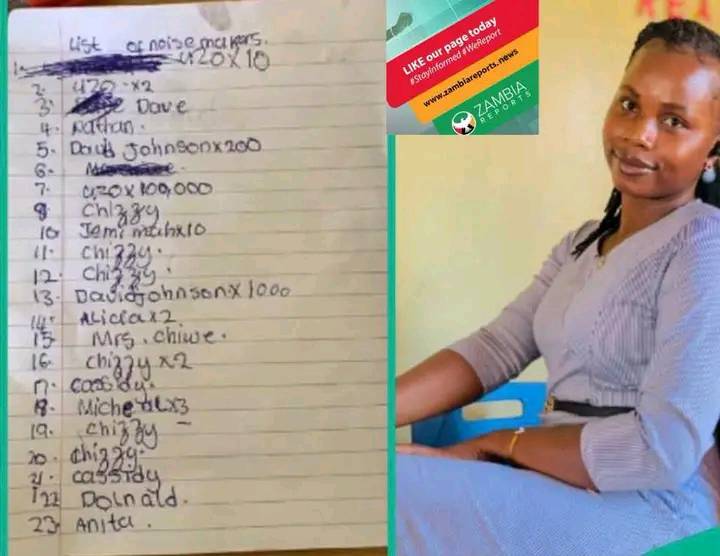 List of noise makers.
1. U20 X 10
2. U20 - X2
3. Dave
4. Nathan.
5. David Johnson x 200
6.
7. U20 X 100,000
8 Chizzy
10 Jemimah x 10
11. Chizzy.
12. Chizzy.
13. David Johnson X 1000
14. Alicia x 2
15 Mrs. Chiwe.
16. Chizzy x2
17. Cassidy.
18. Micheal x3
19. Chizzy -
20. Chizzy.
21. Cassidy
22 Dolnald.
23 Anita.
LIKE our page today
#StayInformed #WeReport
www.zambiareports.news
ZAMBIA
REPORTS